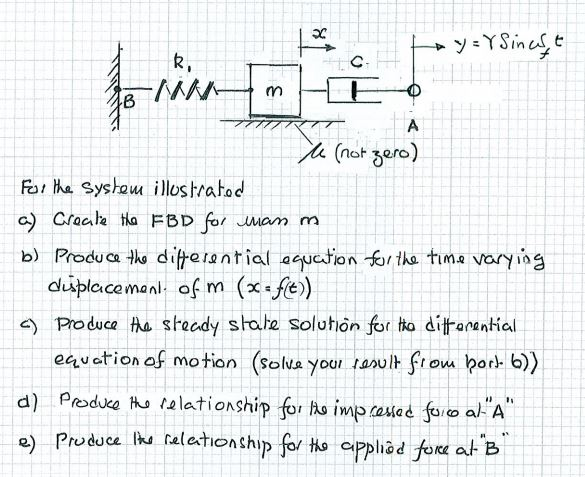 x
y = Y Sin ω_f t
k₁
C
m
B
A
μ (not zero)
For the system illustrated
a) Create the FBD for mass m
b) Produce the differential equation for the time varying
displacement of m (x = f(t))
c) Produce the steady state solution for the differential
equation of motion (solve your result from part b))
d) Produce the relationship for the impressed force at "A"
e) Produce the relationship for the applied force at "B"